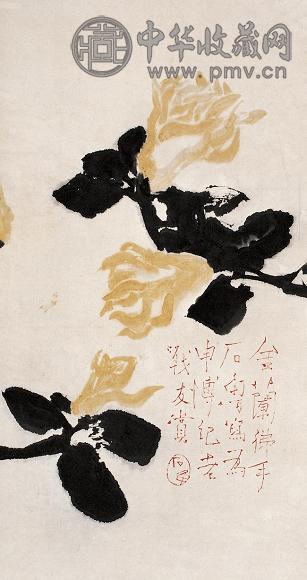 中华收藏网
www.pmv.cn
金蘭佛手
石魯寫為
申紀老
戰友賞